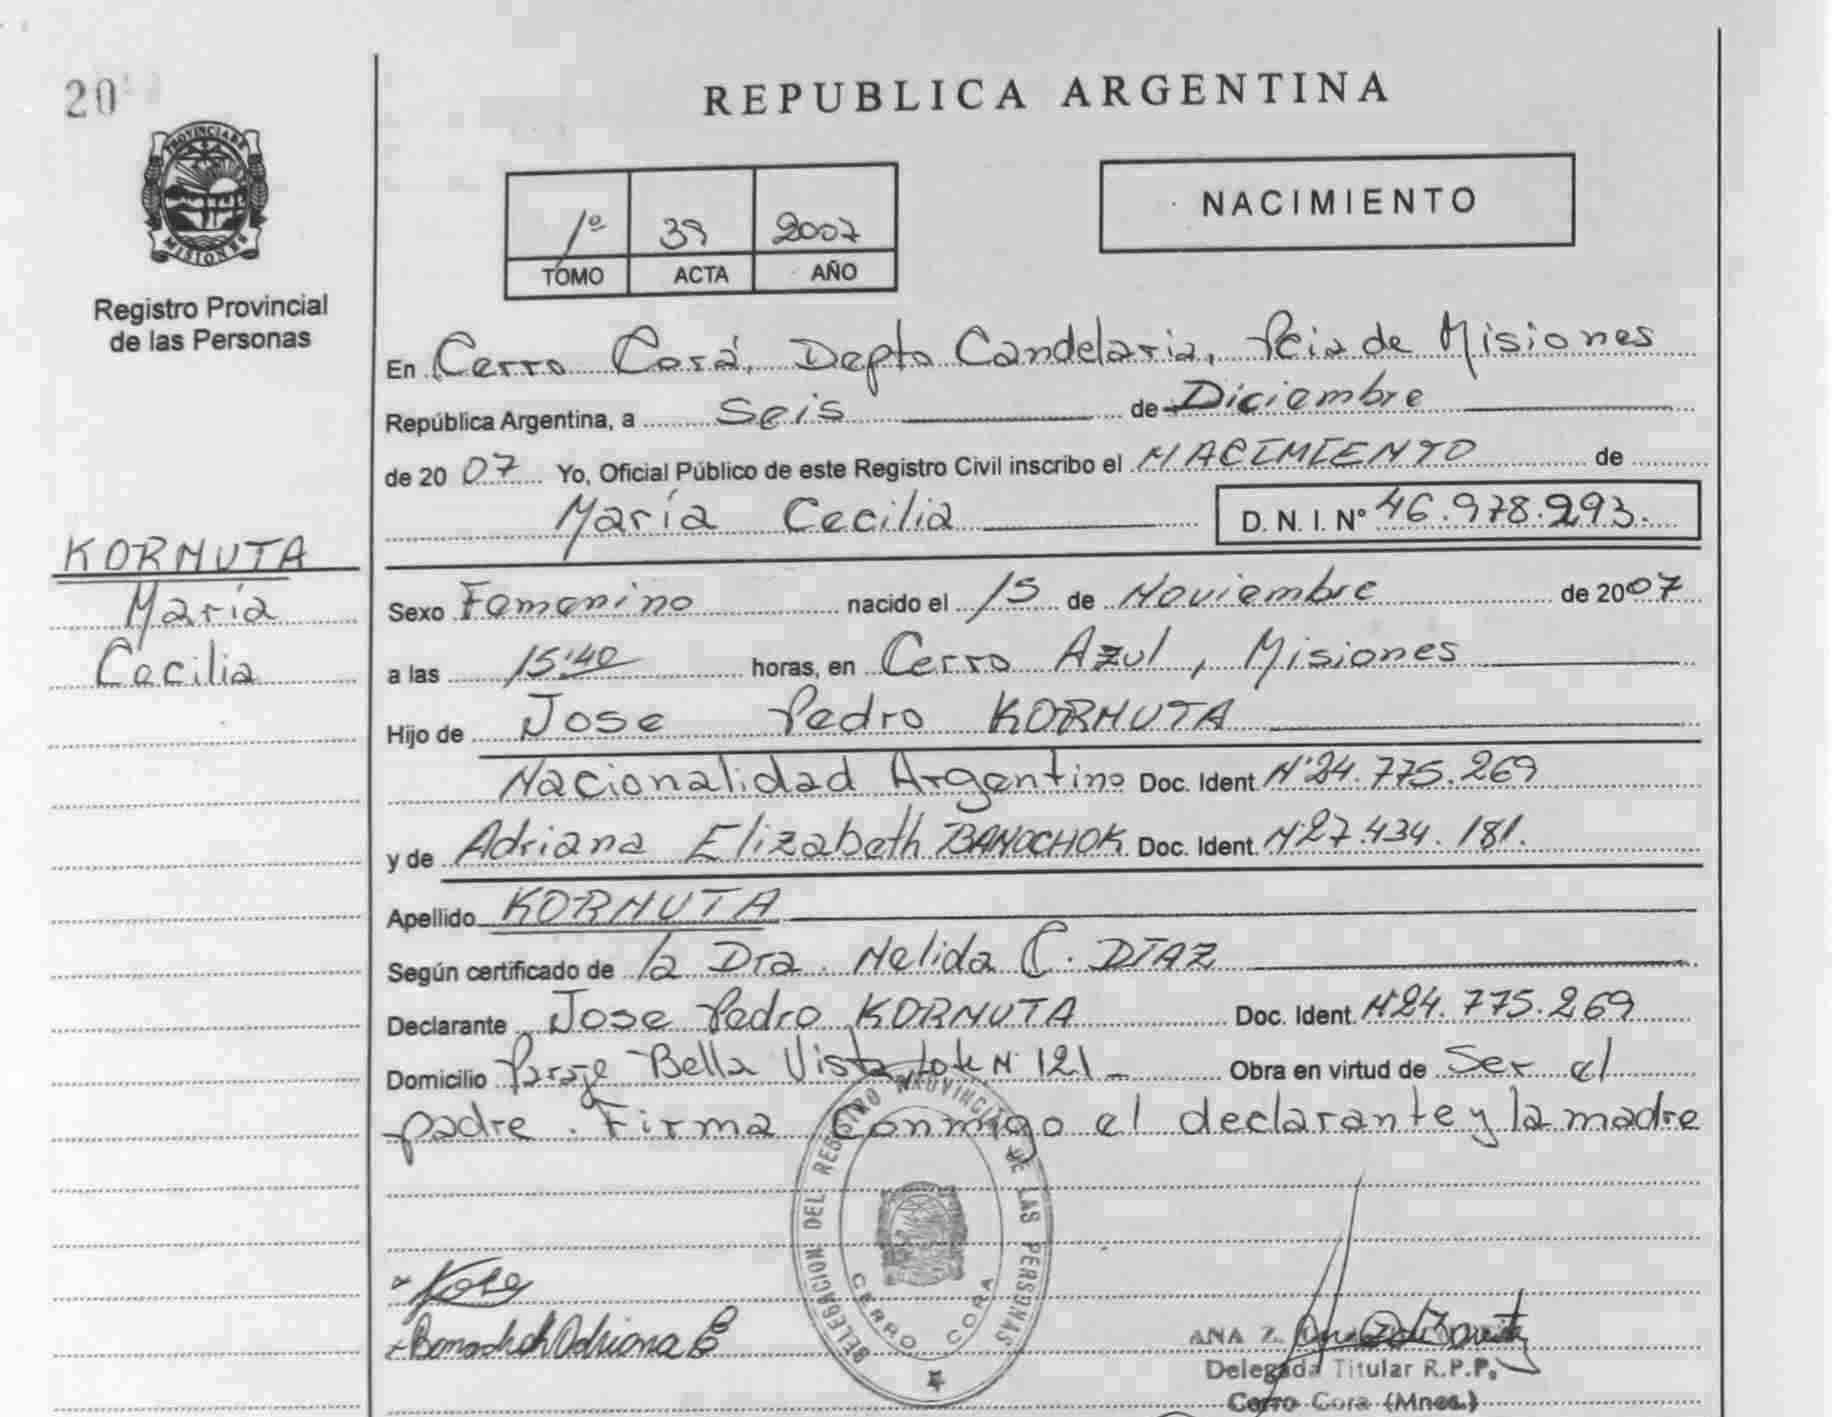 20
REPUBLICA ARGENTINA
PROVINCIA DE MISIONES
Registro Provincial
de las Personas
1º 39 2007
TOMO ACTA AÑO
NACIMIENTO
En Cerro Corá, Depto Candelaria, Pcia de Misiones
República Argentina, a Seis de Diciembre
de 2007 Yo, Oficial Público de este Registro Civil inscribo el NACIMIENTO de
María Cecilia D. N. I. Nº 46.978.293.
KORNUTA
María
Cecilia
Sexo Femenino nacido el 15 de Noviembre de 2007
a las 15:40 horas, en Cerro Azul, Misiones
Hijo de Jose Pedro KORNUTA
Nacionalidad Argentino Doc. Ident. Nº 24.775.269
y de Adriana Elizabeth BANOCHOK Doc. Ident. Nº 27.434.181.
Apellido KORNUTA
Según certificado de la Dra. Nelida C. DIAZ
Declarante Jose Pedro KORNUTA Doc. Ident. Nº 24.775.269
Domicilio Paraje Bella Vista Lote Nº 121 Obra en virtud de Ser el
padre. Firma Conmigo el declarante y la madre
DELEGACION DEL REGISTRO PROVINCIAL DE LAS PERSONAS
CERRO CORA
Adriana E
ANA Z.
Delegada Titular R.P.P.
Cerro Cora (Mnes.)